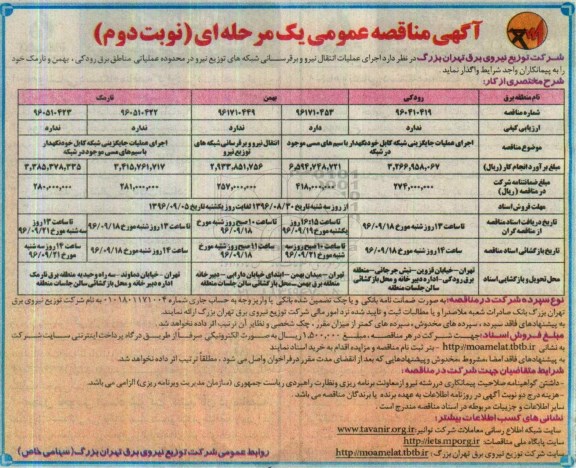 آگهی مناقصه عمومی یک مرحله ای (نوبت دوم)
شرکت توزیع نیروی برق تهران بزرگ در نظر دارد اجرای عملیات انتقال نیرو و برقرسانی شبکه های توزیع نیرو در محدوده عملیاتی مناطق برق رودکی، بهمن و نارمک خود
را به پیمانکاران واجد شرایط واگذار نماید
شرح مختصری از کار:
نام منطقه برق رودکی بهمن نارمک
شماره مناقصه ۹۶۰۴۱۰۴۱۹ ۹۶۱۷۱۰۴۵۳ ۹۶۱۷۱۰۴۴۹ ۹۶۰۵۱۰۴۲۲ ۹۶۰۵۱۰۴۲۳
ارزیابی کیفی ندارد دارد ندارد ندارد ندارد
موضوع مناقصه اجرای عملیات جایگزینی شبکه کابل خودنگهدار با سیم های مسی موجود در شبکه انتقال نیرو و برقرسانی شبکه های توزیع نیرو اجرای عملیات جایگزینی شبکه کابل خودنگهدار با سیم های مسی موجود در شبکه
مبلغ برآورد انجام کار (ریال) ۳,۲۶۶,۹۵۸,۰۶۷ ۶,۵۹۴,۷۴۸,۷۲۱ ۲,۹۳۳,۸۵۱,۷۵۶ ۳,۴۱۵,۷۶۱,۷۱۷ ۳,۳۸۵,۳۷۸,۳۳۵
مبلغ ضمانتنامه شرکت در مناقصه (ریال) ۲۷۴,۰۰۰,۰۰۰ ۴۱۸,۰۰۰,۰۰۰ ۲۵۷,۰۰۰,۰۰۰ ۲۸۱,۰۰۰,۰۰۰ ۲۸۰,۰۰۰,۰۰۰
مهلت فروش اسناد از روز سه شنبه تاریخ ۱۳۹۶/۰۸/۳۰ لغایت روز یکشنبه تاریخ ۱۳۹۶/۰۹/۰۵
تاریخ دریافت اسناد مناقصه از مناقصه گران تا ساعت ۱۳ روز شنبه مورخ ۹۶/۰۹/۱۸ تا ساعت ۱۶:۱۵ روز یکشنبه مورخ تا ساعت ۱۰ صبح روز شنبه مورخ ۹۶/۰۹/۱۸ تا ساعت ۱۳ روز شنبه مورخ ۹۶/۰۹/۱۸ تا ساعت ۱۳ روز سه شنبه مورخ ۹۶/۰۹/۲۱
تاریخ بازگشائی اسناد مناقصه ساعت ۱۴ روز شنبه مورخ ۹۶/۰۹/۱۸ ساعت ۱۰ صبح روز سه شنبه مورخ ۹۶/۰۹/۲۱ ساعت ۱۱ صبح روز شنبه مورخ ۹۶/۰۹/۱۸ ساعت ۱۴ روز شنبه مورخ ۹۶/۰۹/۱۸ ساعت ۱۴ روز سه شنبه مورخ ۹۶/۰۹/۲۱
محل تحویل و بازگشایی اسناد تهران - خیابان قزوین - نبش جرجانی - منطقه برق رودکی - اداره دبیرخانه و محل بازگشائی سالن جلسات منطقه تهران - میدان بهمن - ابتدای خیابان دارابی - دبیرخانه منطقه برق بهمن - محل بازگشائی سالن جلسات منطقه تهران - خیابان دماوند - سه راه وحیدیه منطقه برق نارمک اداره دبیرخانه و محل بازگشائی سالن جلسات منطقه
نوع سپرده شرکت در مناقصه: به صورت ضمانت نامه بانکی و یا چک تضمین شده بانکی یا واریز وجه به حساب جاری شماره ۰۱۰۱۸۰۱۱۷۱۰۰۴ به نام شرکت توزیع نیروی برق
تهران بزرگ بانک صادرات شعبه ملاصدرا و یا مطالبات ثبت و تایید شده نزد امور مالی شرکت توزیع نیروی برق تهران بزرگ ارائه نمایند.
به پیشنهادهای فاقد سپرده، سپرده های مخدوش، سپرده های کمتر از میزان مقرر، چک شخصی و نظایر آن ترتیب اثر داده نخواهد شد.
مبلغ فروش اسناد: جهت شرکت در هر مناقصه، مبلغ ۱,۵۰۰,۰۰۰ ریال به صورت الکترونیکی صرفاً از طریق درگاه پرداخت اینترنتی سایت شرکت
به نشانی http://moamelat.tbtb.ir بنر ثبت نام مناقصه و مزایده اقدام به خرید اسناد نمایند
به پیشنهادهای فاقد امضا، مشروط، مخدوش و پیشنهادهایی که بعد از انقضای مدت مقرر در فراخوان واصل می شود، مطلقاً ترتیب اثر داده نخواهد شد.
شرایط متقاضیان جهت شرکت در مناقصه:
- داشتن گواهینامه صلاحیت پیمانکاری در رشته نیرو از معاونت برنامه ریزی و نظارت راهبردی ریاست جمهوری (سازمان مدیریت و برنامه ریزی) الزامی می باشد.
- هزینه درج دو نوبت آگهی در روزنامه اطلاعات به عهده برنده یا برندگان مناقصه می باشد.
سایر اطلاعات و جزییات مربوطه در اسناد مناقصه مندرج است.
نشانی های کسب اطلاعات بیشتر:
سایت شبکه اطلاع رسانی معاملات شرکت توانیر www.tavanir.org.ir
سایت پایگاه ملی مناقصات http://iets.mporg.ir
سایت شرکت توزیع نیروی برق تهران بزرگ http://moamelat.tbtb.ir
روابط عمومی شرکت توزیع نیروی برق تهران بزرگ (سهامی خاص)